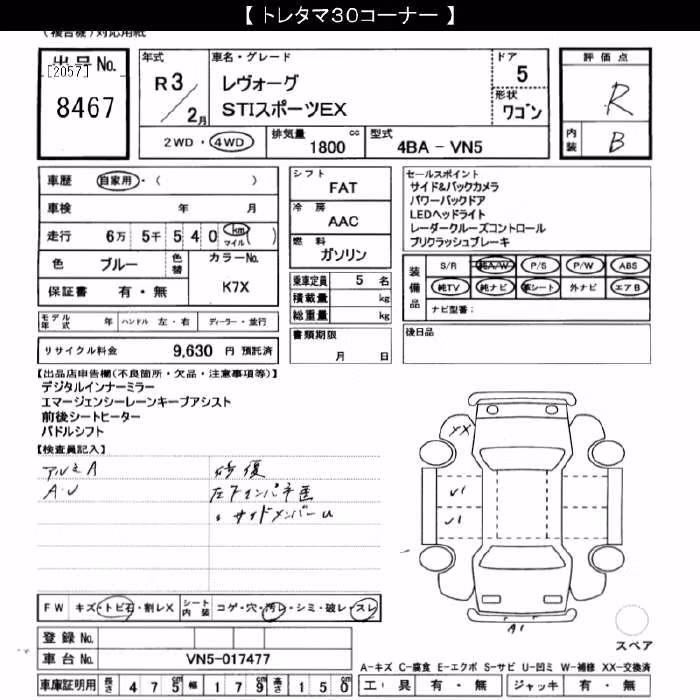 【 トレタマ30コーナー 】
(複合機)対応用紙
出品No.
[2057]
8467
年式
R3/2月
車名・グレード
レヴォーグ
STIスポーツEX
ドア
5
形状
ワゴン
評価点
R
内装
B
2WD・4WD
排気量 1800 cc
型式 4BA - VN5
車歴 自家用・( )
車検 年 月
走行 6万 5千 5 4 0 km マイル ( )
色 ブルー
色替
カラーNo.
K7X
保証書 有・無
シフト
FAT
冷房
AAC
燃料
ガソリン
乗車定員 5 名
積載量 kg
総重量 kg
書類期限
月 日
セールスポイント
サイド&バックカメラ
パワーバックドア
LEDヘッドライト
レーダークルーズコントロール
プリクラッシュブレーキ
装備品
S/R 純A/W P/S P/W ABS
純TV 純ナビ 革シート 外ナビ エアB
ナビ型番:
後日品
モデル年式 年 ハンドル 左・右 ディーラー・並行
リサイクル料金 9,630 円 預託済
【出品店申告欄(不良箇所・欠品・注意事項等)】
デジタルインナーミラー
エマージェンシーレーンキープアシスト
前後シートヒーター
パドルシフト
【検査員記入】
アルミA
A・U
修復
左Fインパネ歪
〃 サイドメンバーU
XX
U1
U1
A1
FW キズ・トビ石・割レX
シート内装 コゲ・穴・汚レ・シミ・破レ・スレ
登録No.
車台No. VN5-017477
車庫証明用 長さ 475cm 幅 179cm 高さ 150cm
スペア
A-キズ C-腐食 E-エクボ S-サビ U-凹ミ W-補修 XX-交換済
工具 有・無 ジャッキ 有・無